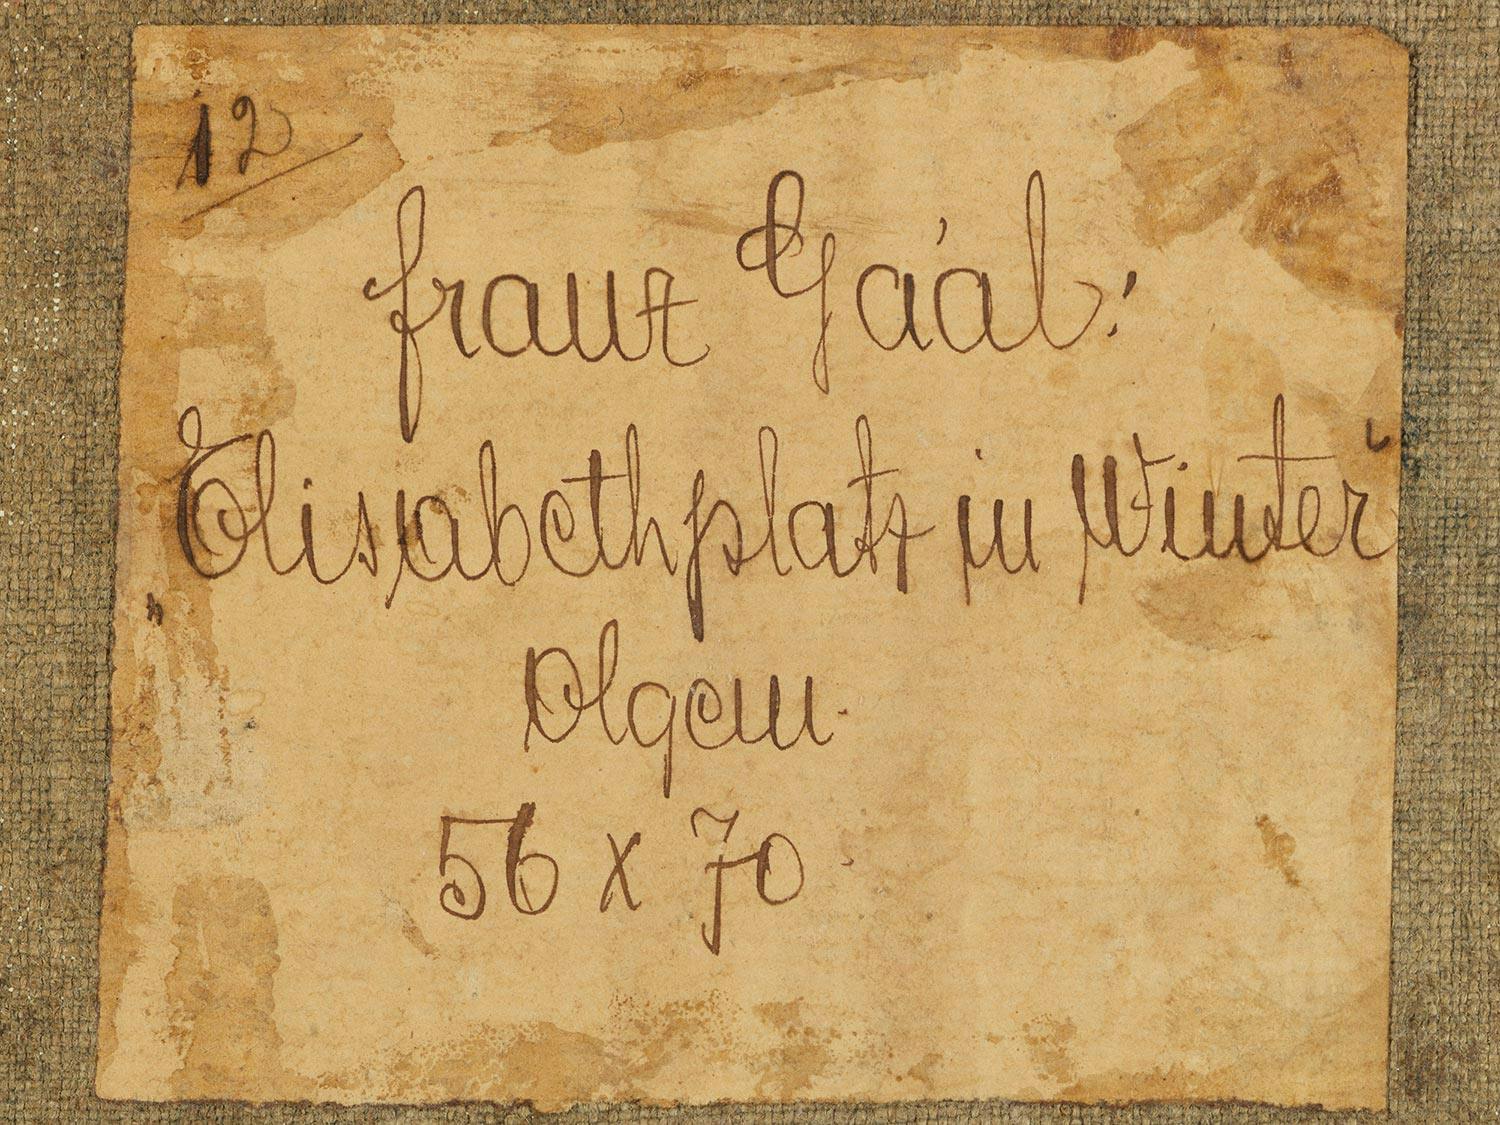 12
Franz Gaál:
„Elisabethplatz in Winter“
Ölgem.
56 x 70.